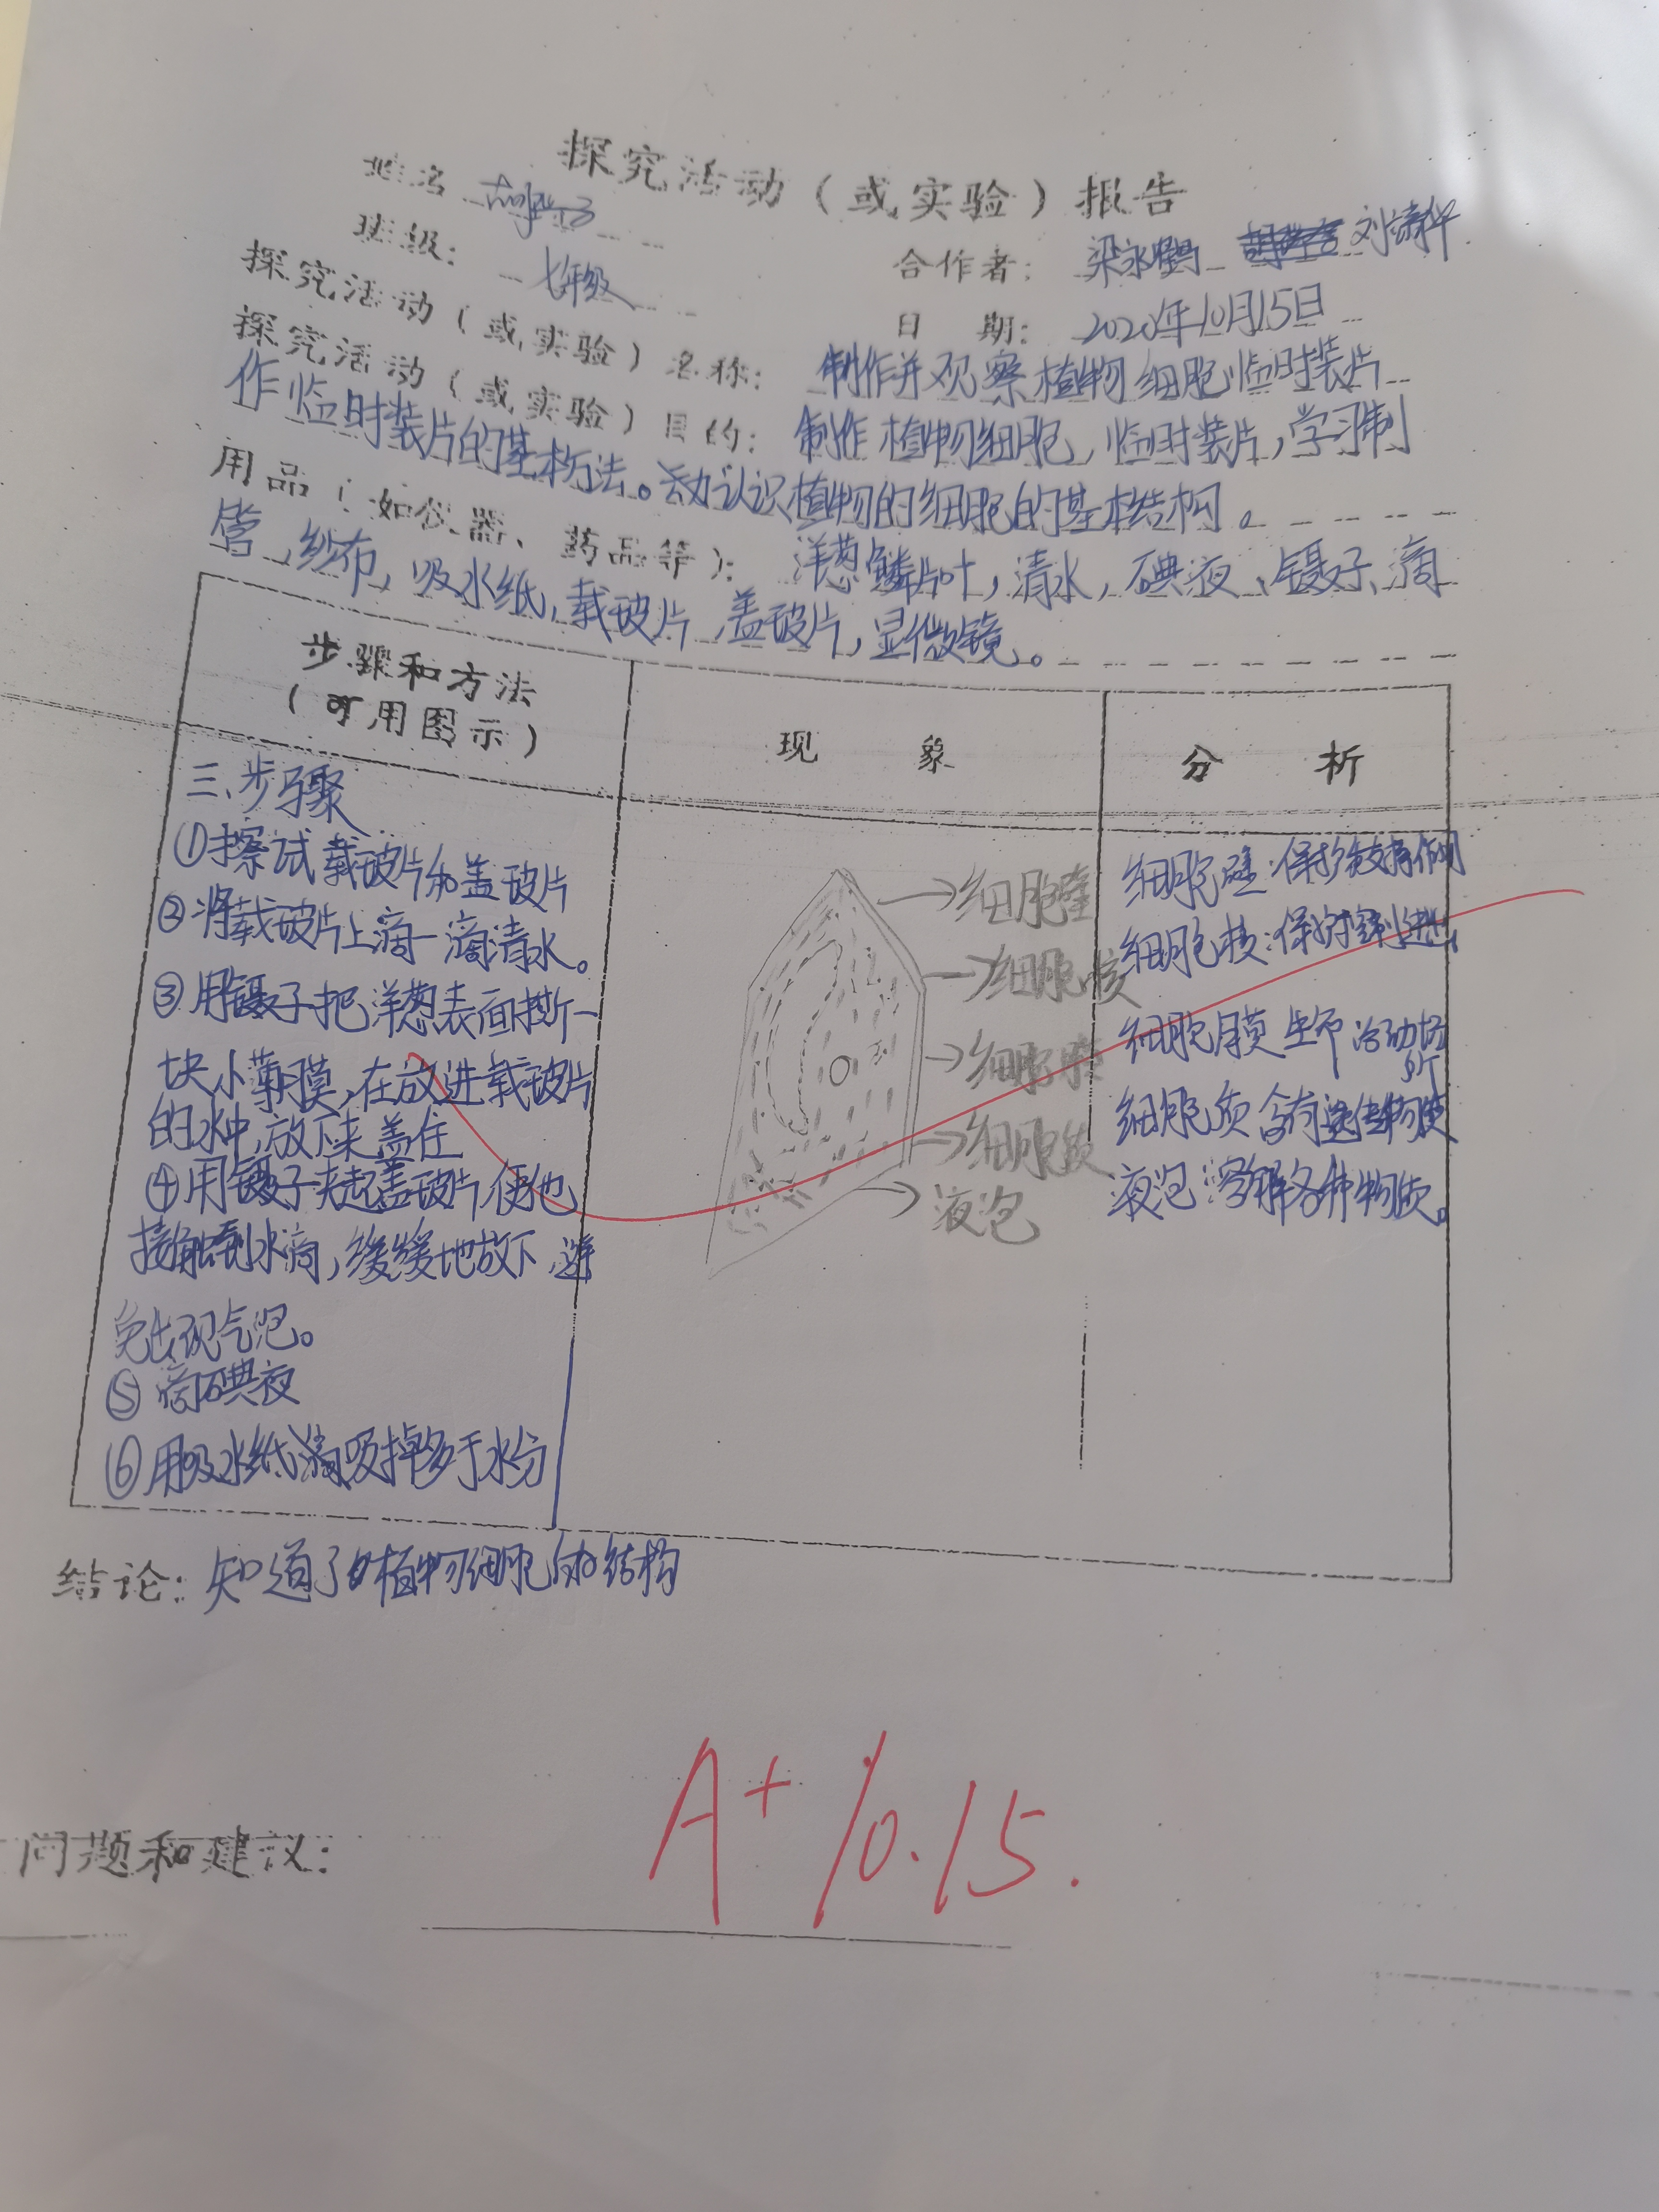 探究活动(或实验)报告
姓名
合作者: 梁永鹏 刘
班级: 七年级
日 期: 2020年10月15日
探究活动(或实验)名称: 制作并观察植物细胞临时装片
探究活动(或实验)目的: 制作植物细胞,临时装片,学习制
作临时装片的基本方法。认识植物的细胞的基本结构。
用品(如仪器、药品等): 洋葱鳞片叶,清水,碘液、镊子、滴
管,纱布,吸水纸,载玻片,盖玻片,显微镜。
步骤和方法
(可用图示)
现 象
分 析
三、步骤
①擦试载玻片和盖玻片
②将载玻片上滴一滴清水。
③用镊子把洋葱表面撕一
块小薄膜,在放进载玻片
的水中,放下来盖住
④用镊子夹起盖玻片,使他
接触到水滴,缓缓地放下,避
免出现气泡。
⑤滴碘夜
⑥用吸水纸 吸掉多于水分
细胞壁
细胞核
细胞膜
细胞质
液泡
细胞壁:保护支持作用
细胞核:保护控制进出
细胞膜 生命活动场所
细胞质 含有遗传物质
液泡:溶解各种物质。
结论: 知道了植物细胞的结构
A+ 10.15.
问题和建议: